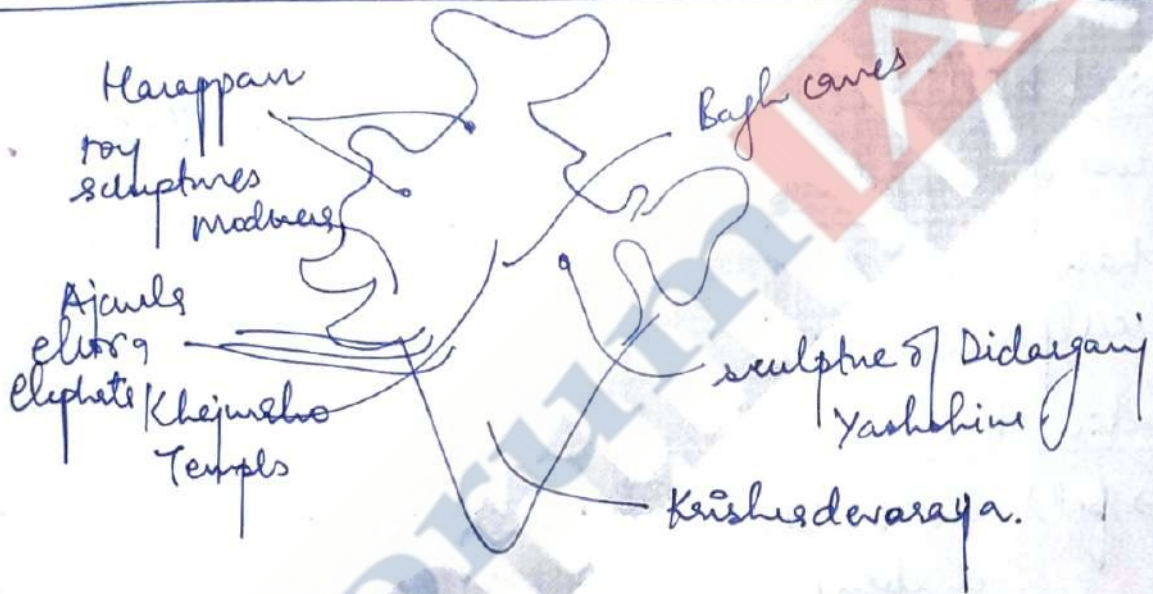 Harappan
toy
sculptures
Bagh caves
Ajanta
ellora
elephata
Khajuraho
Temples
sculptue of Didarganj
Yashshini
Krishndevaraya.